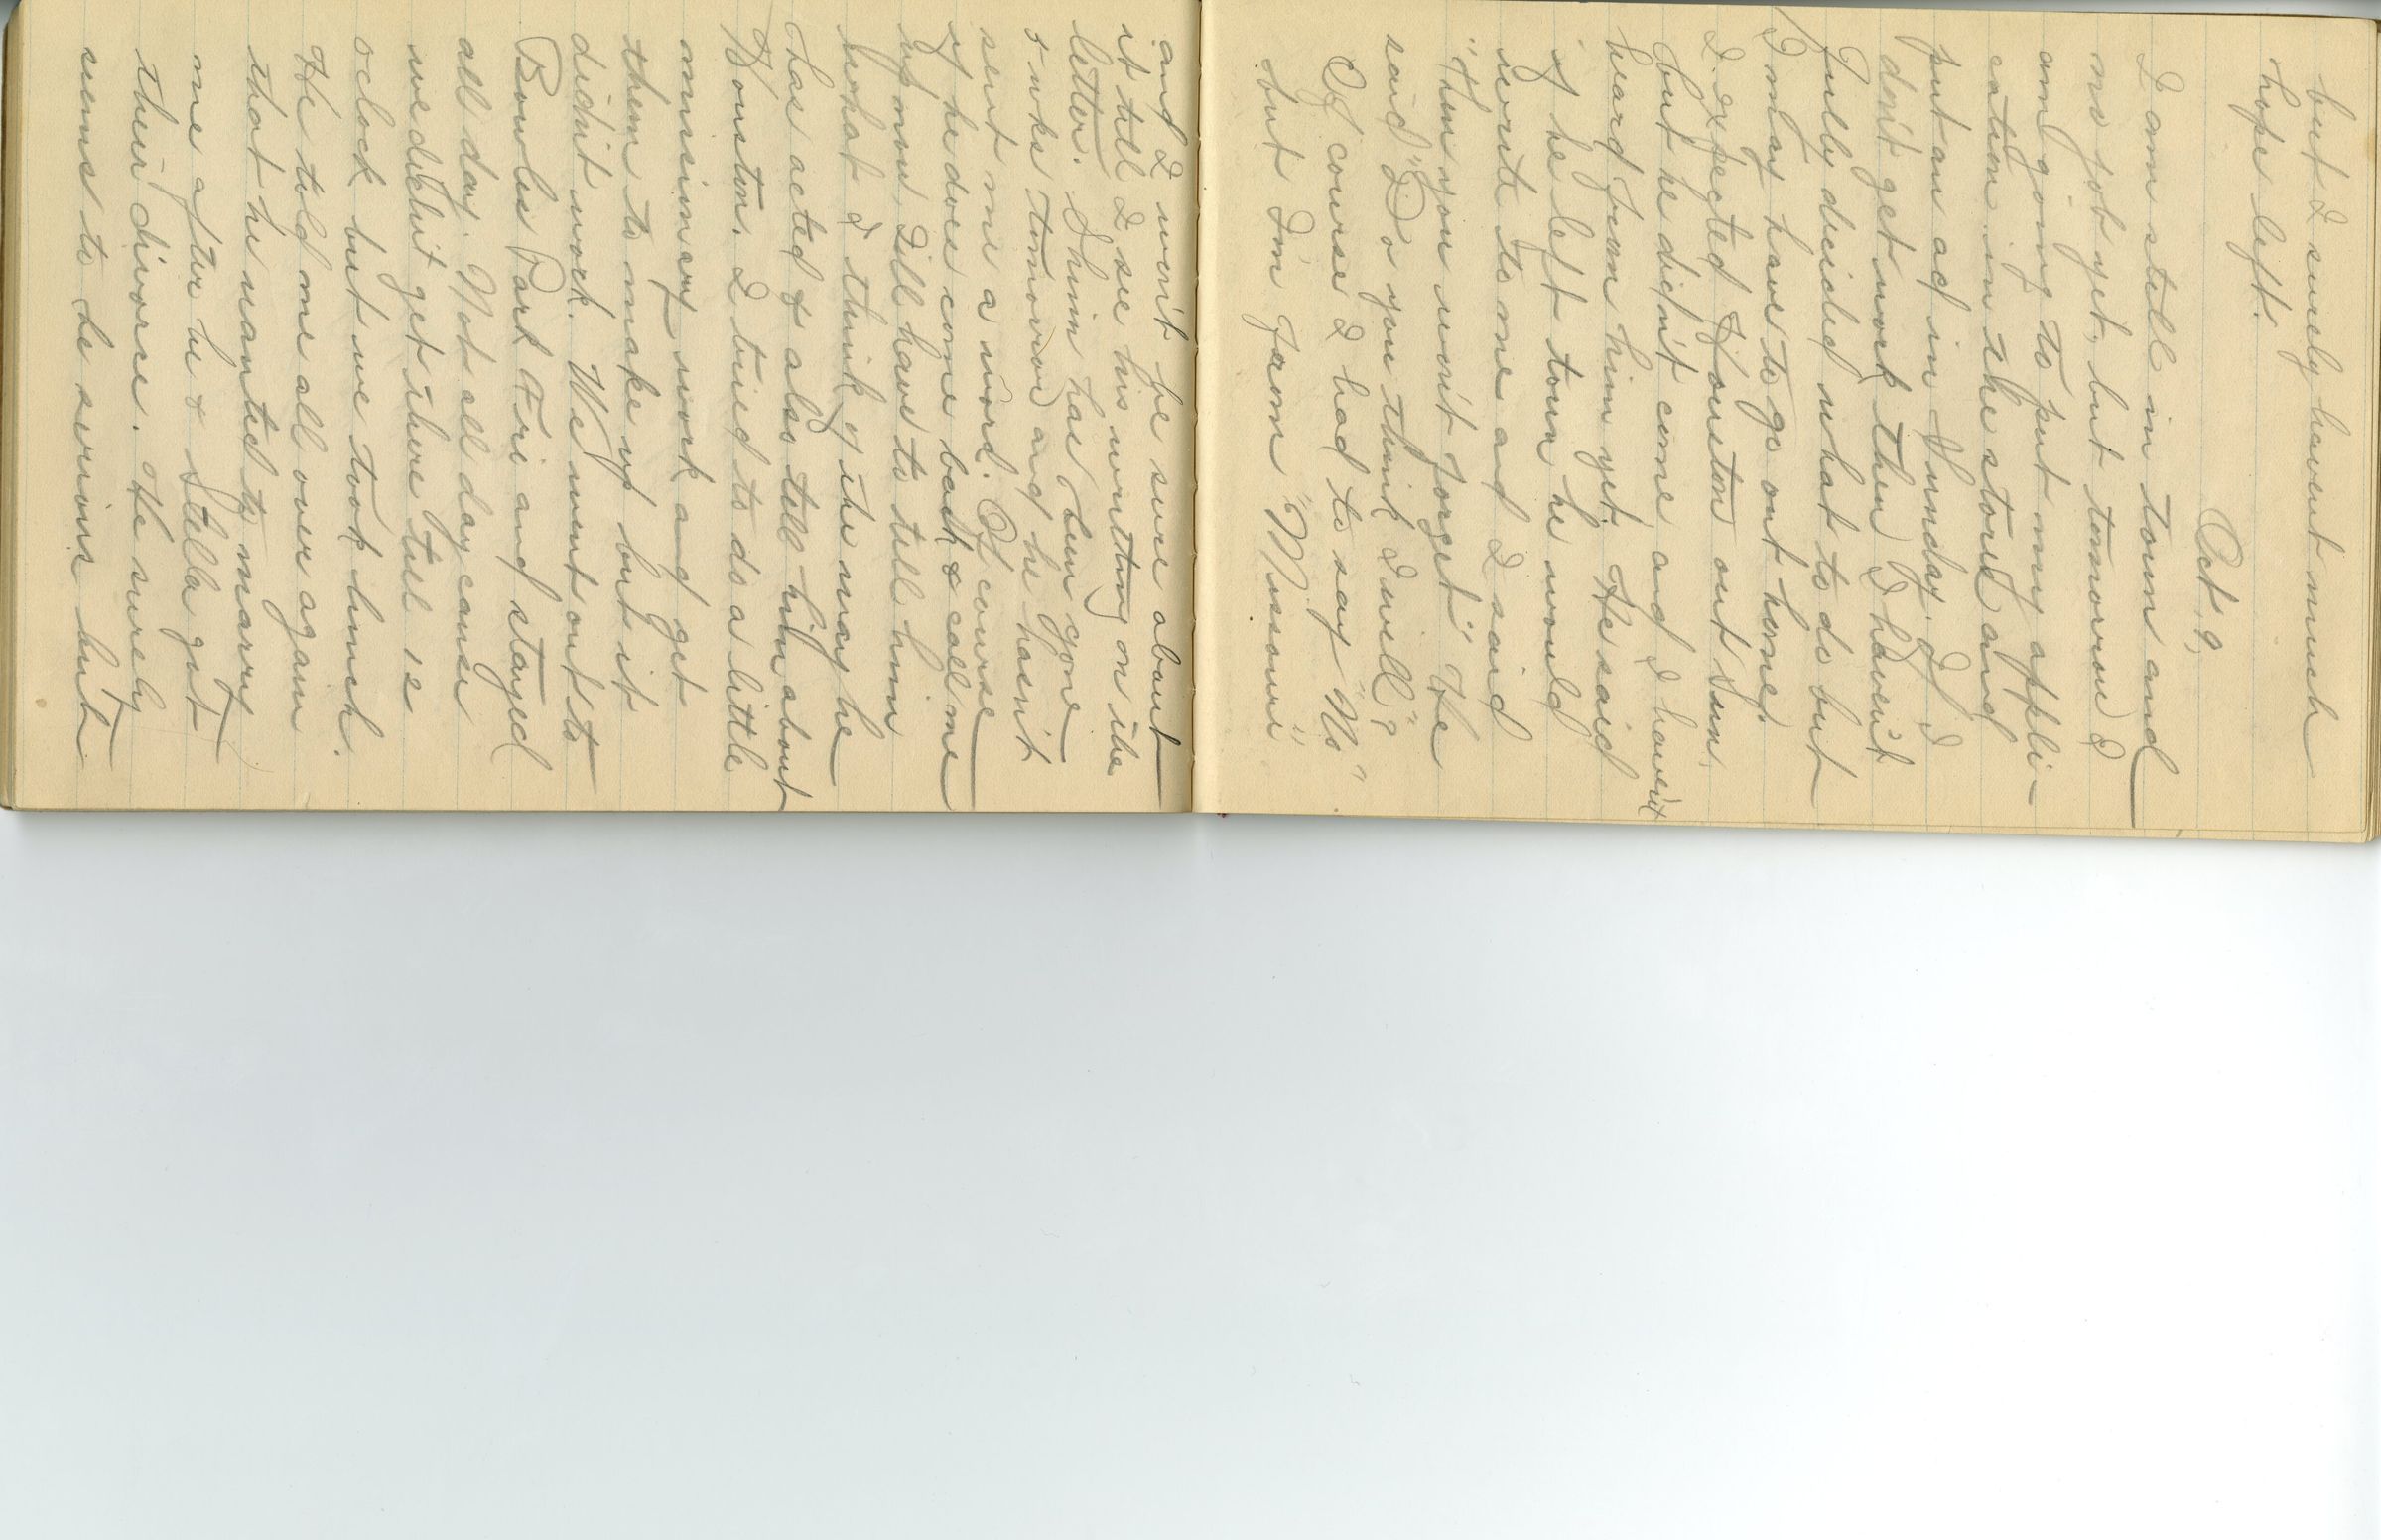 but I surely havent much
hope left.
Oct 9,
I am still in town and
no job yet, but tomorrow I
am going to put my appli-
cation in the stores and
put an ad in Sunday. If I
don't get work then I haven't
fully decided what to do but
I may have to go out home.
I expected Houston out Sun,
but he didn't come and I haven't
heard from him yet. He said
if he left town he would
write to me and I said
"then you won't forget" He
said "Do you think I will"?
Of course I had to say "No"
but I'm from "Missouri"
and I won't be sure about
it till I see his writting on the
letter. Shinn has been gone
5 wks tomorrow and he hasn't
sent me a word. Of course
if he does come back & call me
up now, I'll have to tell him
what I think of the way he
has acted & also tell him about
Houston. I tried to do a little
missionary work and get
them to make up but it
didn't work. We went out to
Bowles Park Fri and stayed
all day. Not all day cause
we didn't get there till 12
oclock but we took lunch.
He told me all over again
that he wanted to marry
me after he & Stella get
their divorce. He surely
seems to be serious but